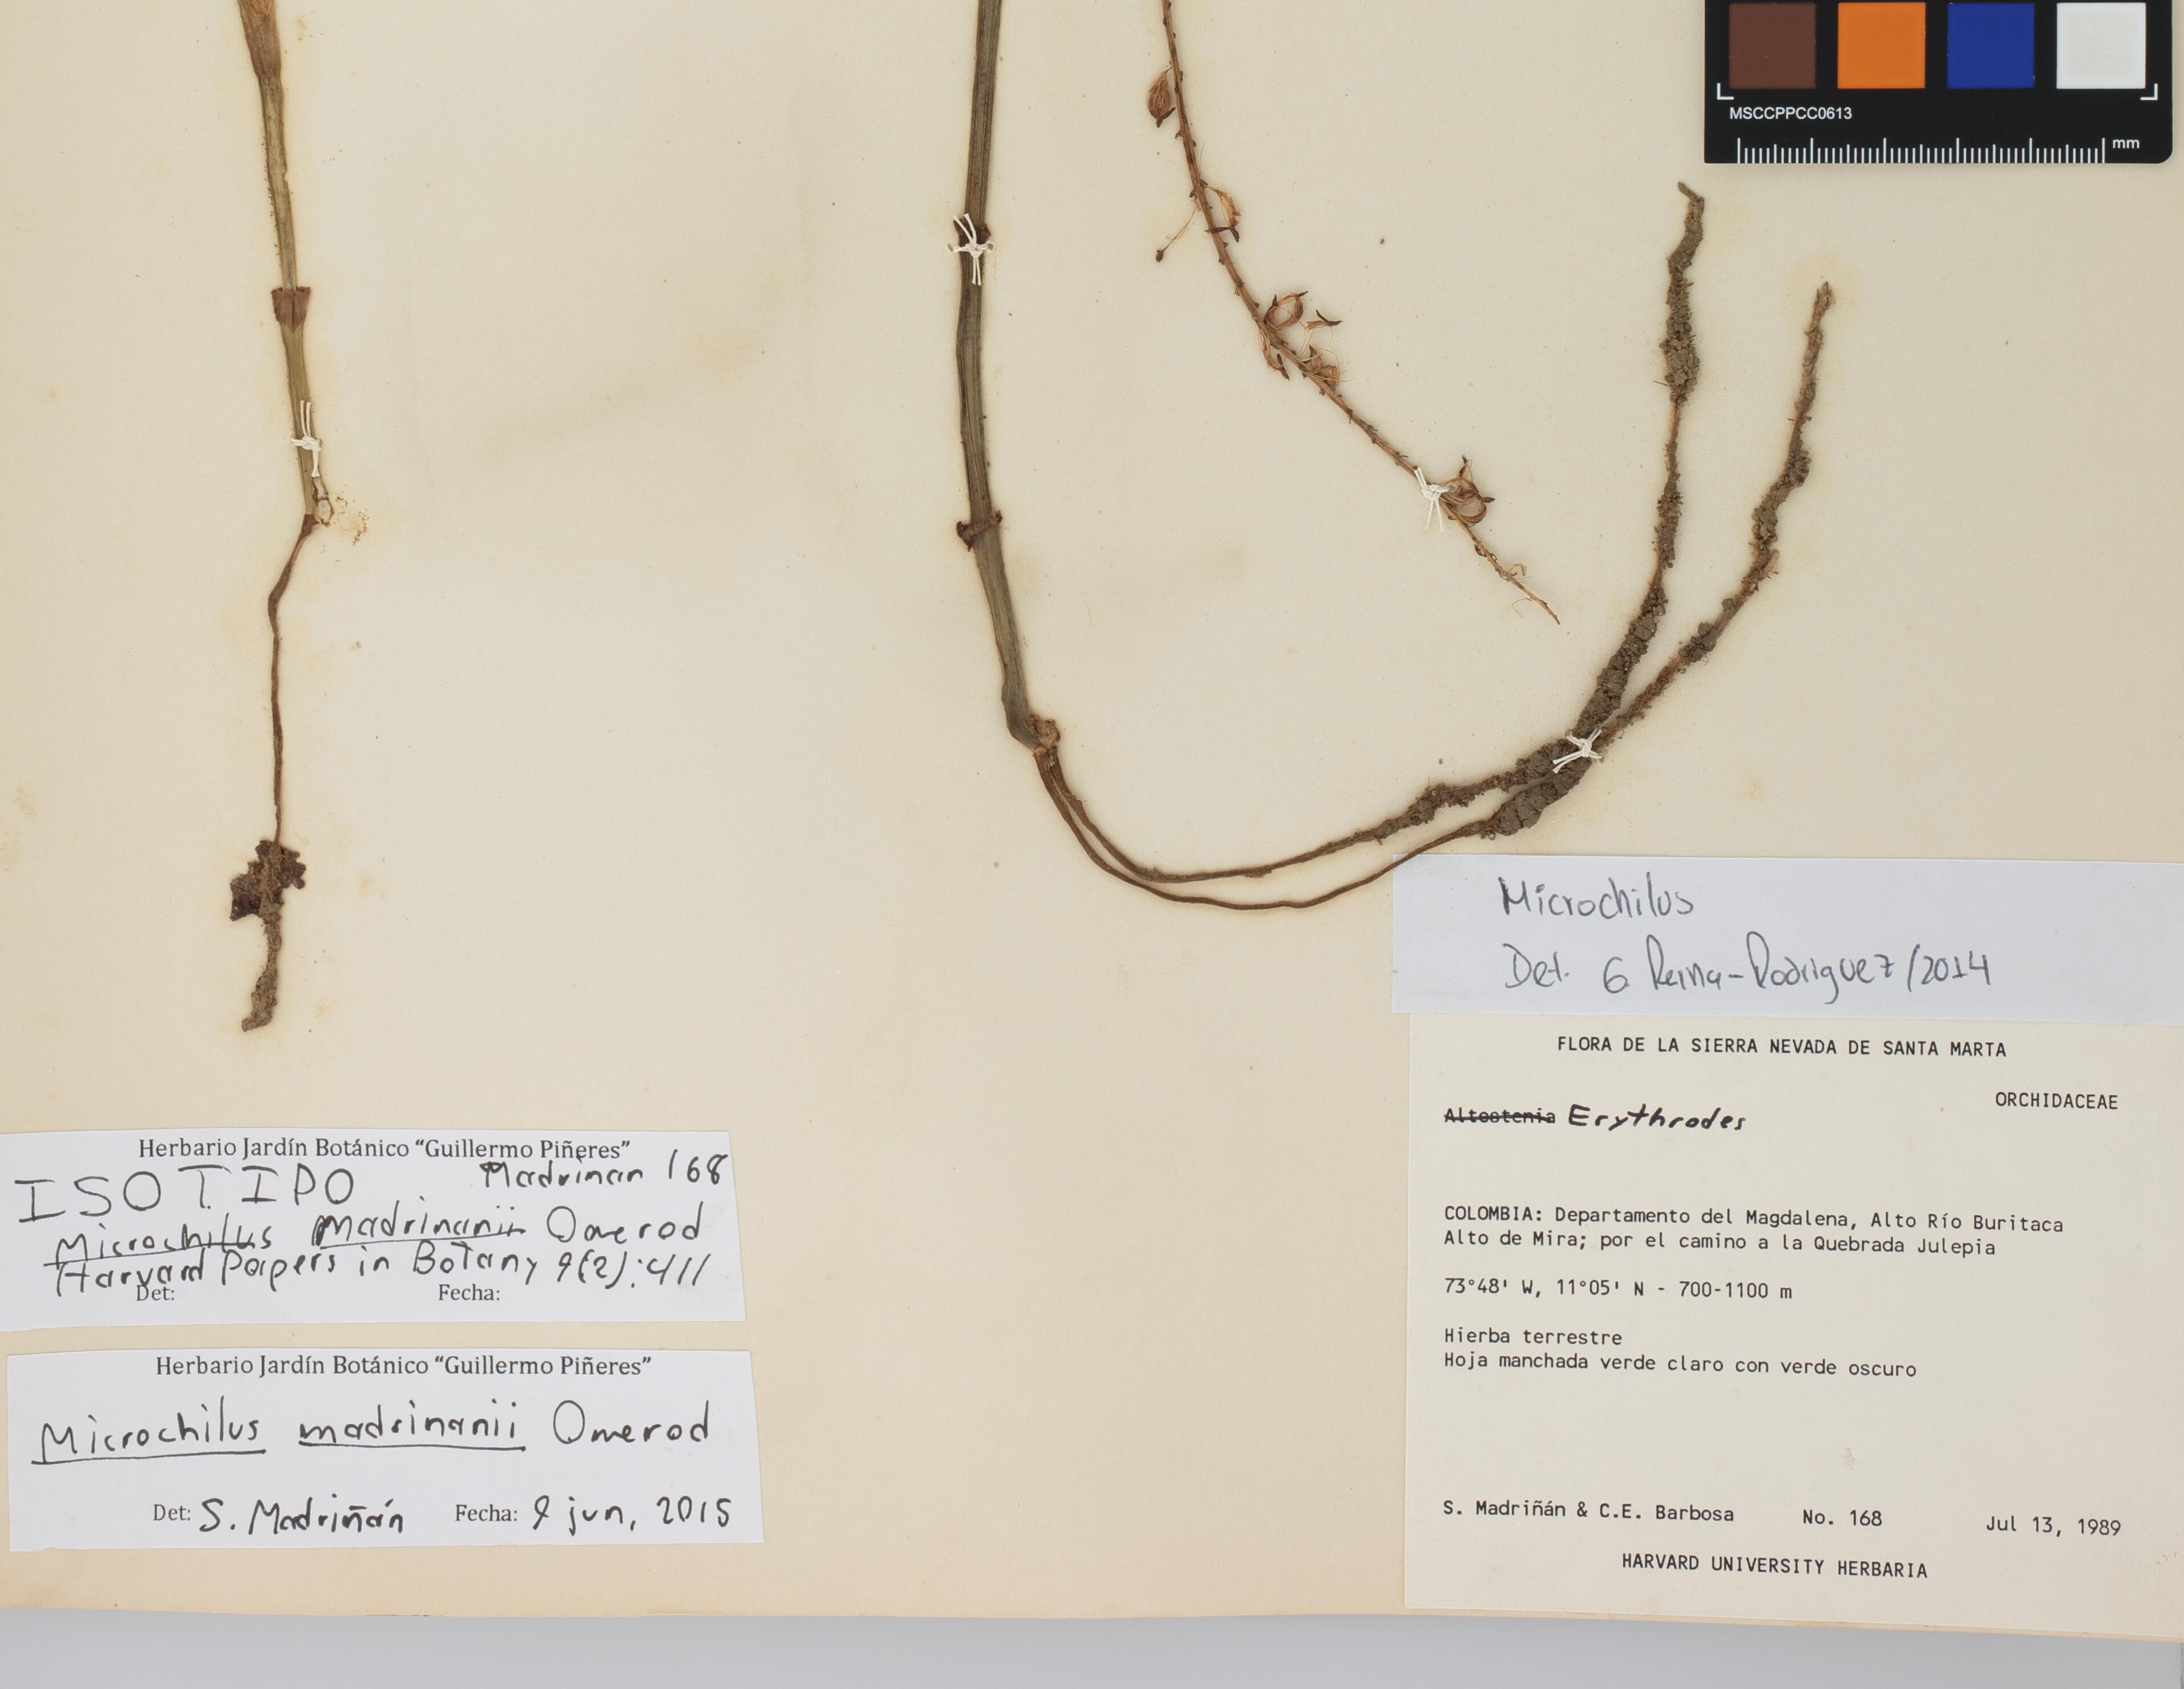 MSCCPPCC0613
mm
Microchilus
Det. G Reina-Rodriguez/2014
FLORA DE LA SIERRA NEVADA DE SANTA MARTA
ORCHIDACEAE
Altostenia Erythrodes
COLOMBIA: Departamento del Magdalena, Alto Río Buritaca
Alto de Mira; por el camino a la Quebrada Julepia
73°48' W, 11°05' N - 700-1100 m
Hierba terrestre
Hoja manchada verde claro con verde oscuro
S. Madriñán & C.E. Barbosa No. 168 Jul 13, 1989
HARVARD UNIVERSITY HERBARIA
Herbario Jardín Botánico “Guillermo Piñeres”
ISOTIPO Madrinan 168
Microchilus madrinanii Omerod
Harvard Papers in Botany 9(2):411
Det: Fecha:
Herbario Jardín Botánico “Guillermo Piñeres”
Microchilus madrinanii Omerod
Det: S. Madriñán Fecha: 9 jun, 2015